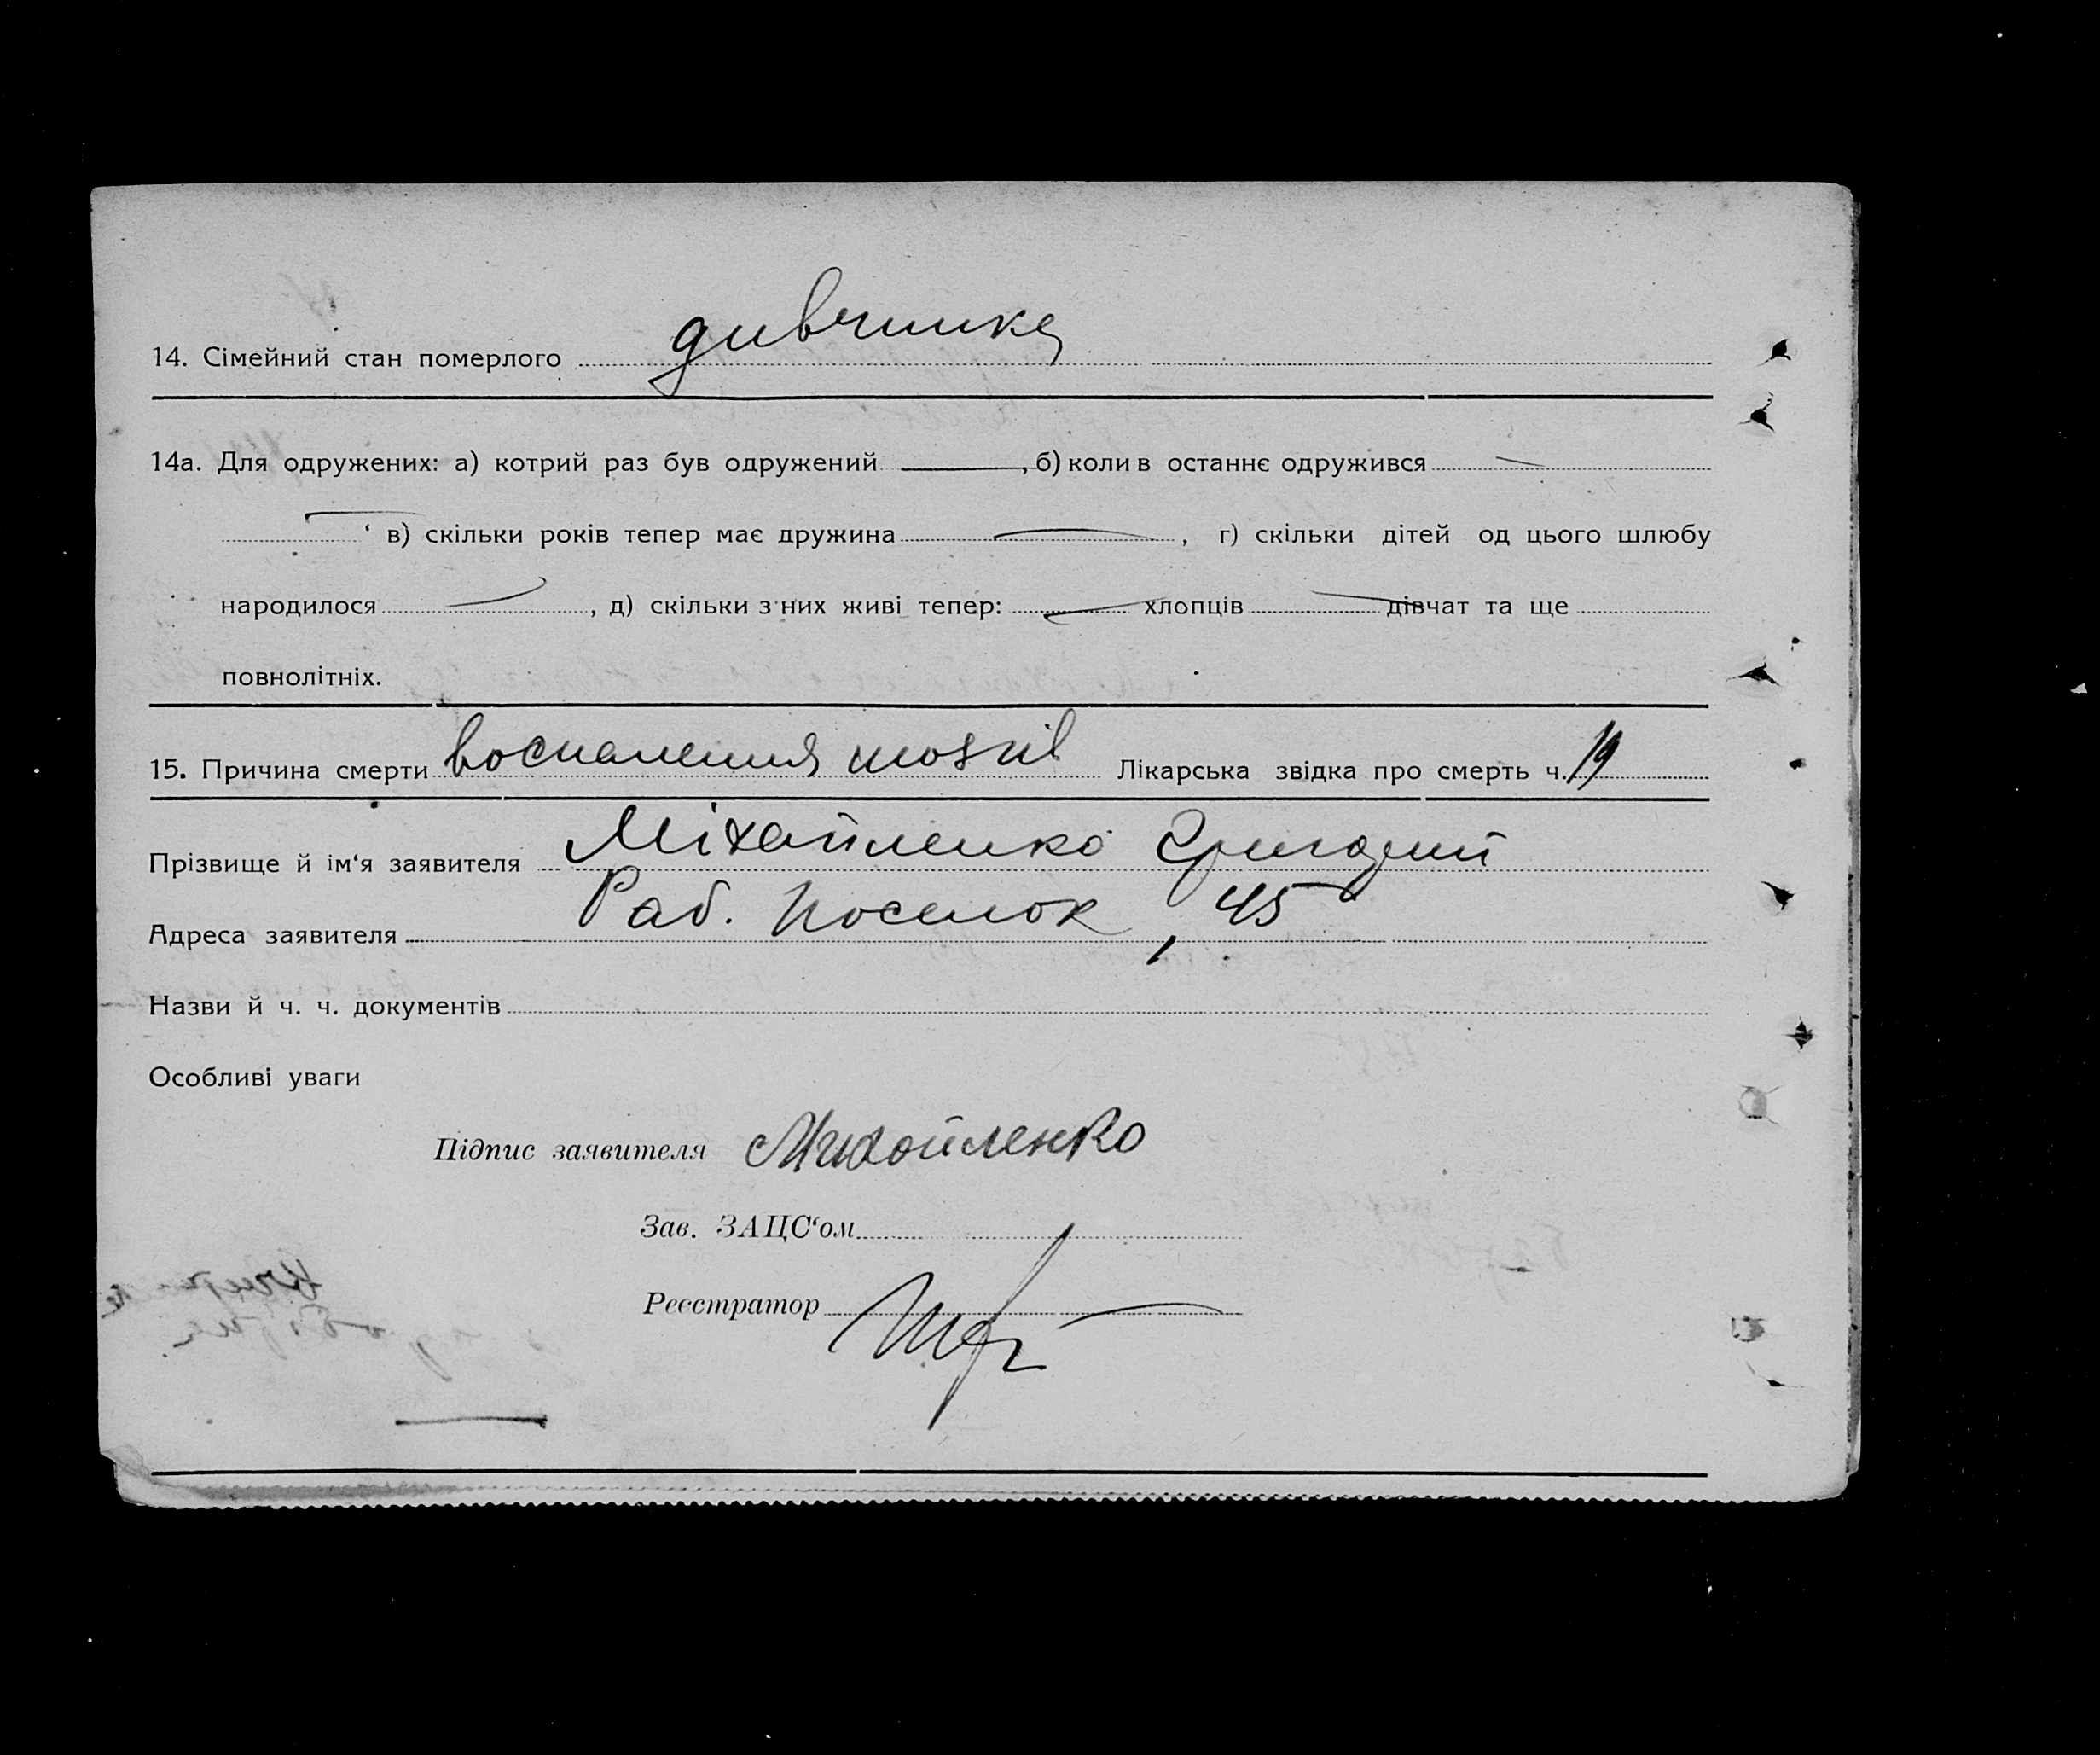 14. Сімейний стан померлого дивчинка
14а. Для одружених: а) котрий раз був одружений , б) коли в останнє одружився
в) скільки років тепер має дружина , г) скільки дітей од цього шлюбу
народилося , д) скільки з них живі тепер: хлопців дівчат та ще
повнолітніх.
15. Причина смерти воспаления мозків Лікарська звідка про смерть ч. 19
Прізвище й ім‘я заявителя Міхайленко Григорий
Адреса заявителя Раб. поселок, 45
Назви й ч. ч. документів
Особливі уваги
Підпис заявителя Михайленко
Зав. ЗАЦС‘ом
Реєстратор